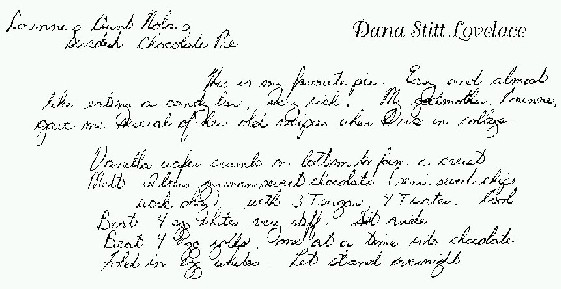 Dana Stitt Lovelace
Lorinne & Aunt
Chocolate Pie
This is my favorite pie. Easy and almost
like eating a candy bar, very rich! My Godmother, Lorinne,
gave me several of her old recipes when I was in college
Vanilla wafer crumbs on bottom to form a crust
Melt 2 bars german sweet chocolate (semi-sweet chips
work okay) with 3 T sugar, 4 T water. Cool
Beat 4 egg whites very stiff. Set aside
Beat 4 egg yolks, one at a time into chocolate
Fold in egg whites. Let stand overnight